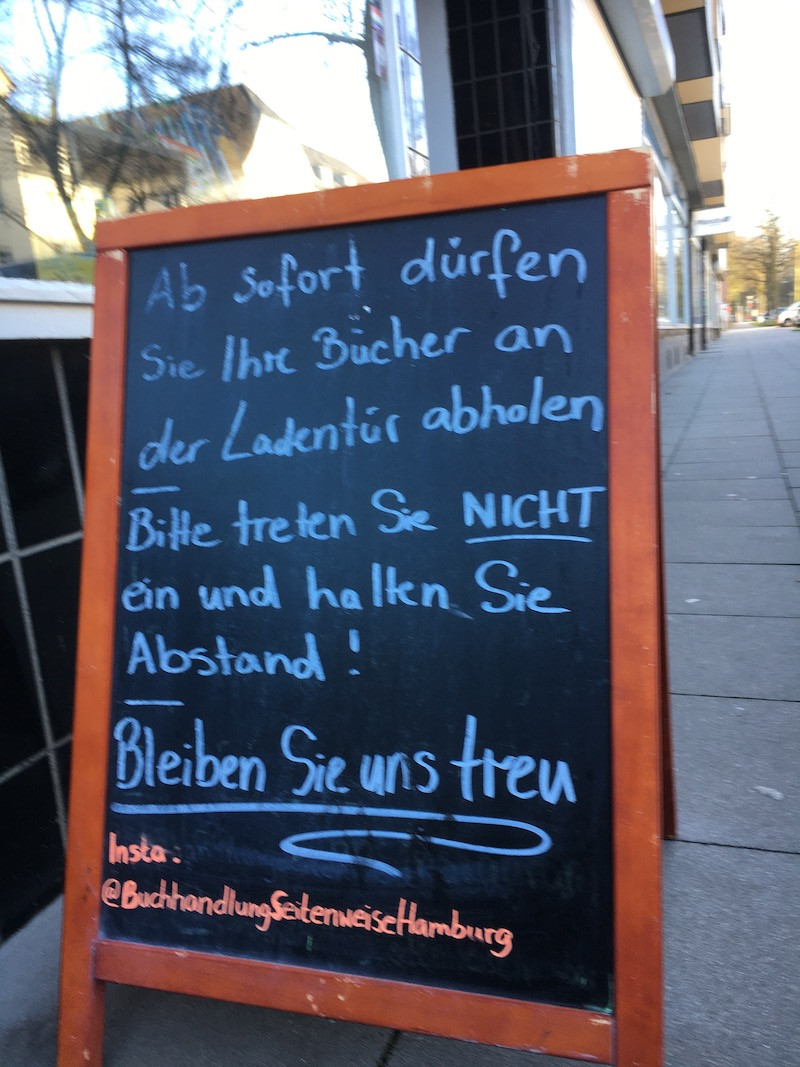 Ab sofort dürfen
Sie Ihre Bücher an
der Ladentür abholen
Bitte treten Sie NICHT
ein und halten Sie
Abstand!
Bleiben Sie uns treu
Insta:
@BuchhandlungSeitenweiseHamburg